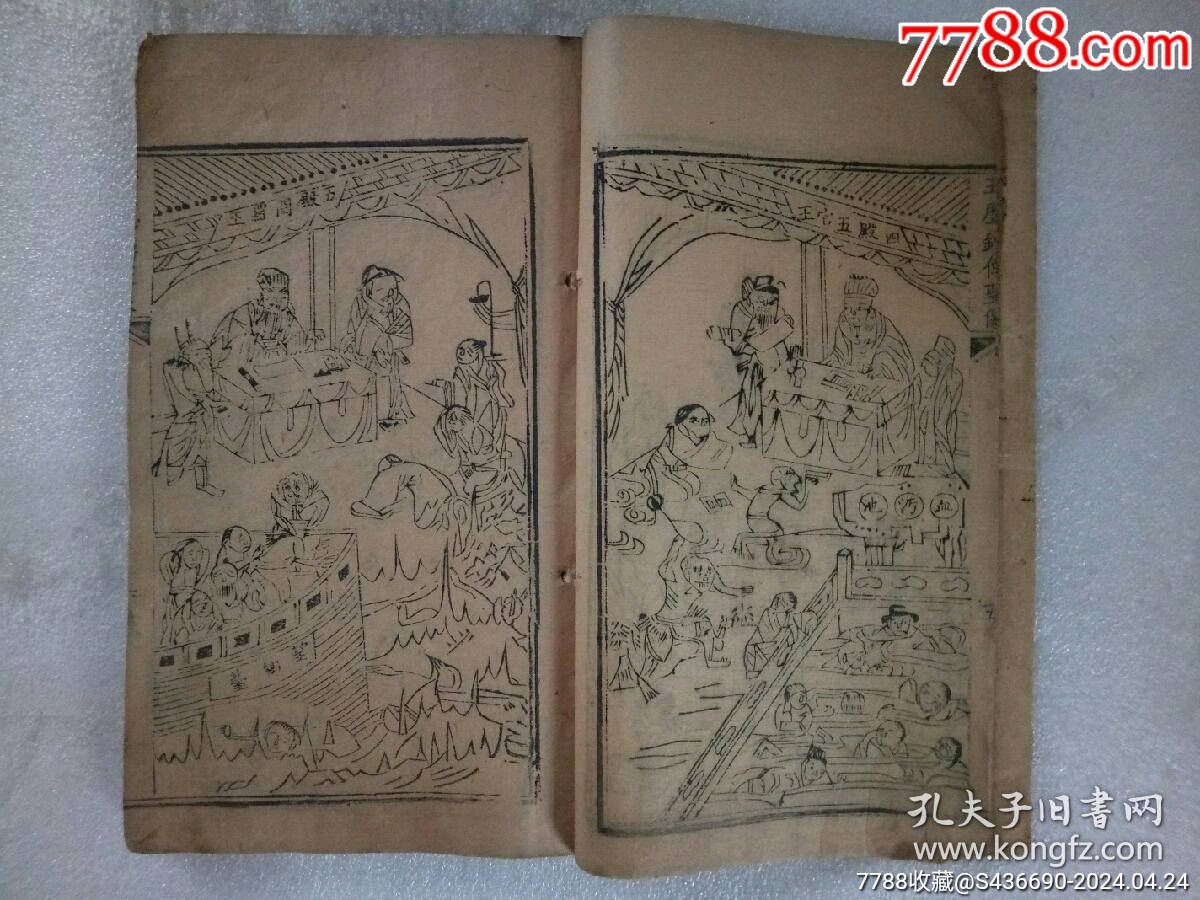 7788.com
四殿五官王
血污池
五殿閻尊王
孔夫子旧書网
www.kongfz.com
7788收藏@S436690-2024.04.24